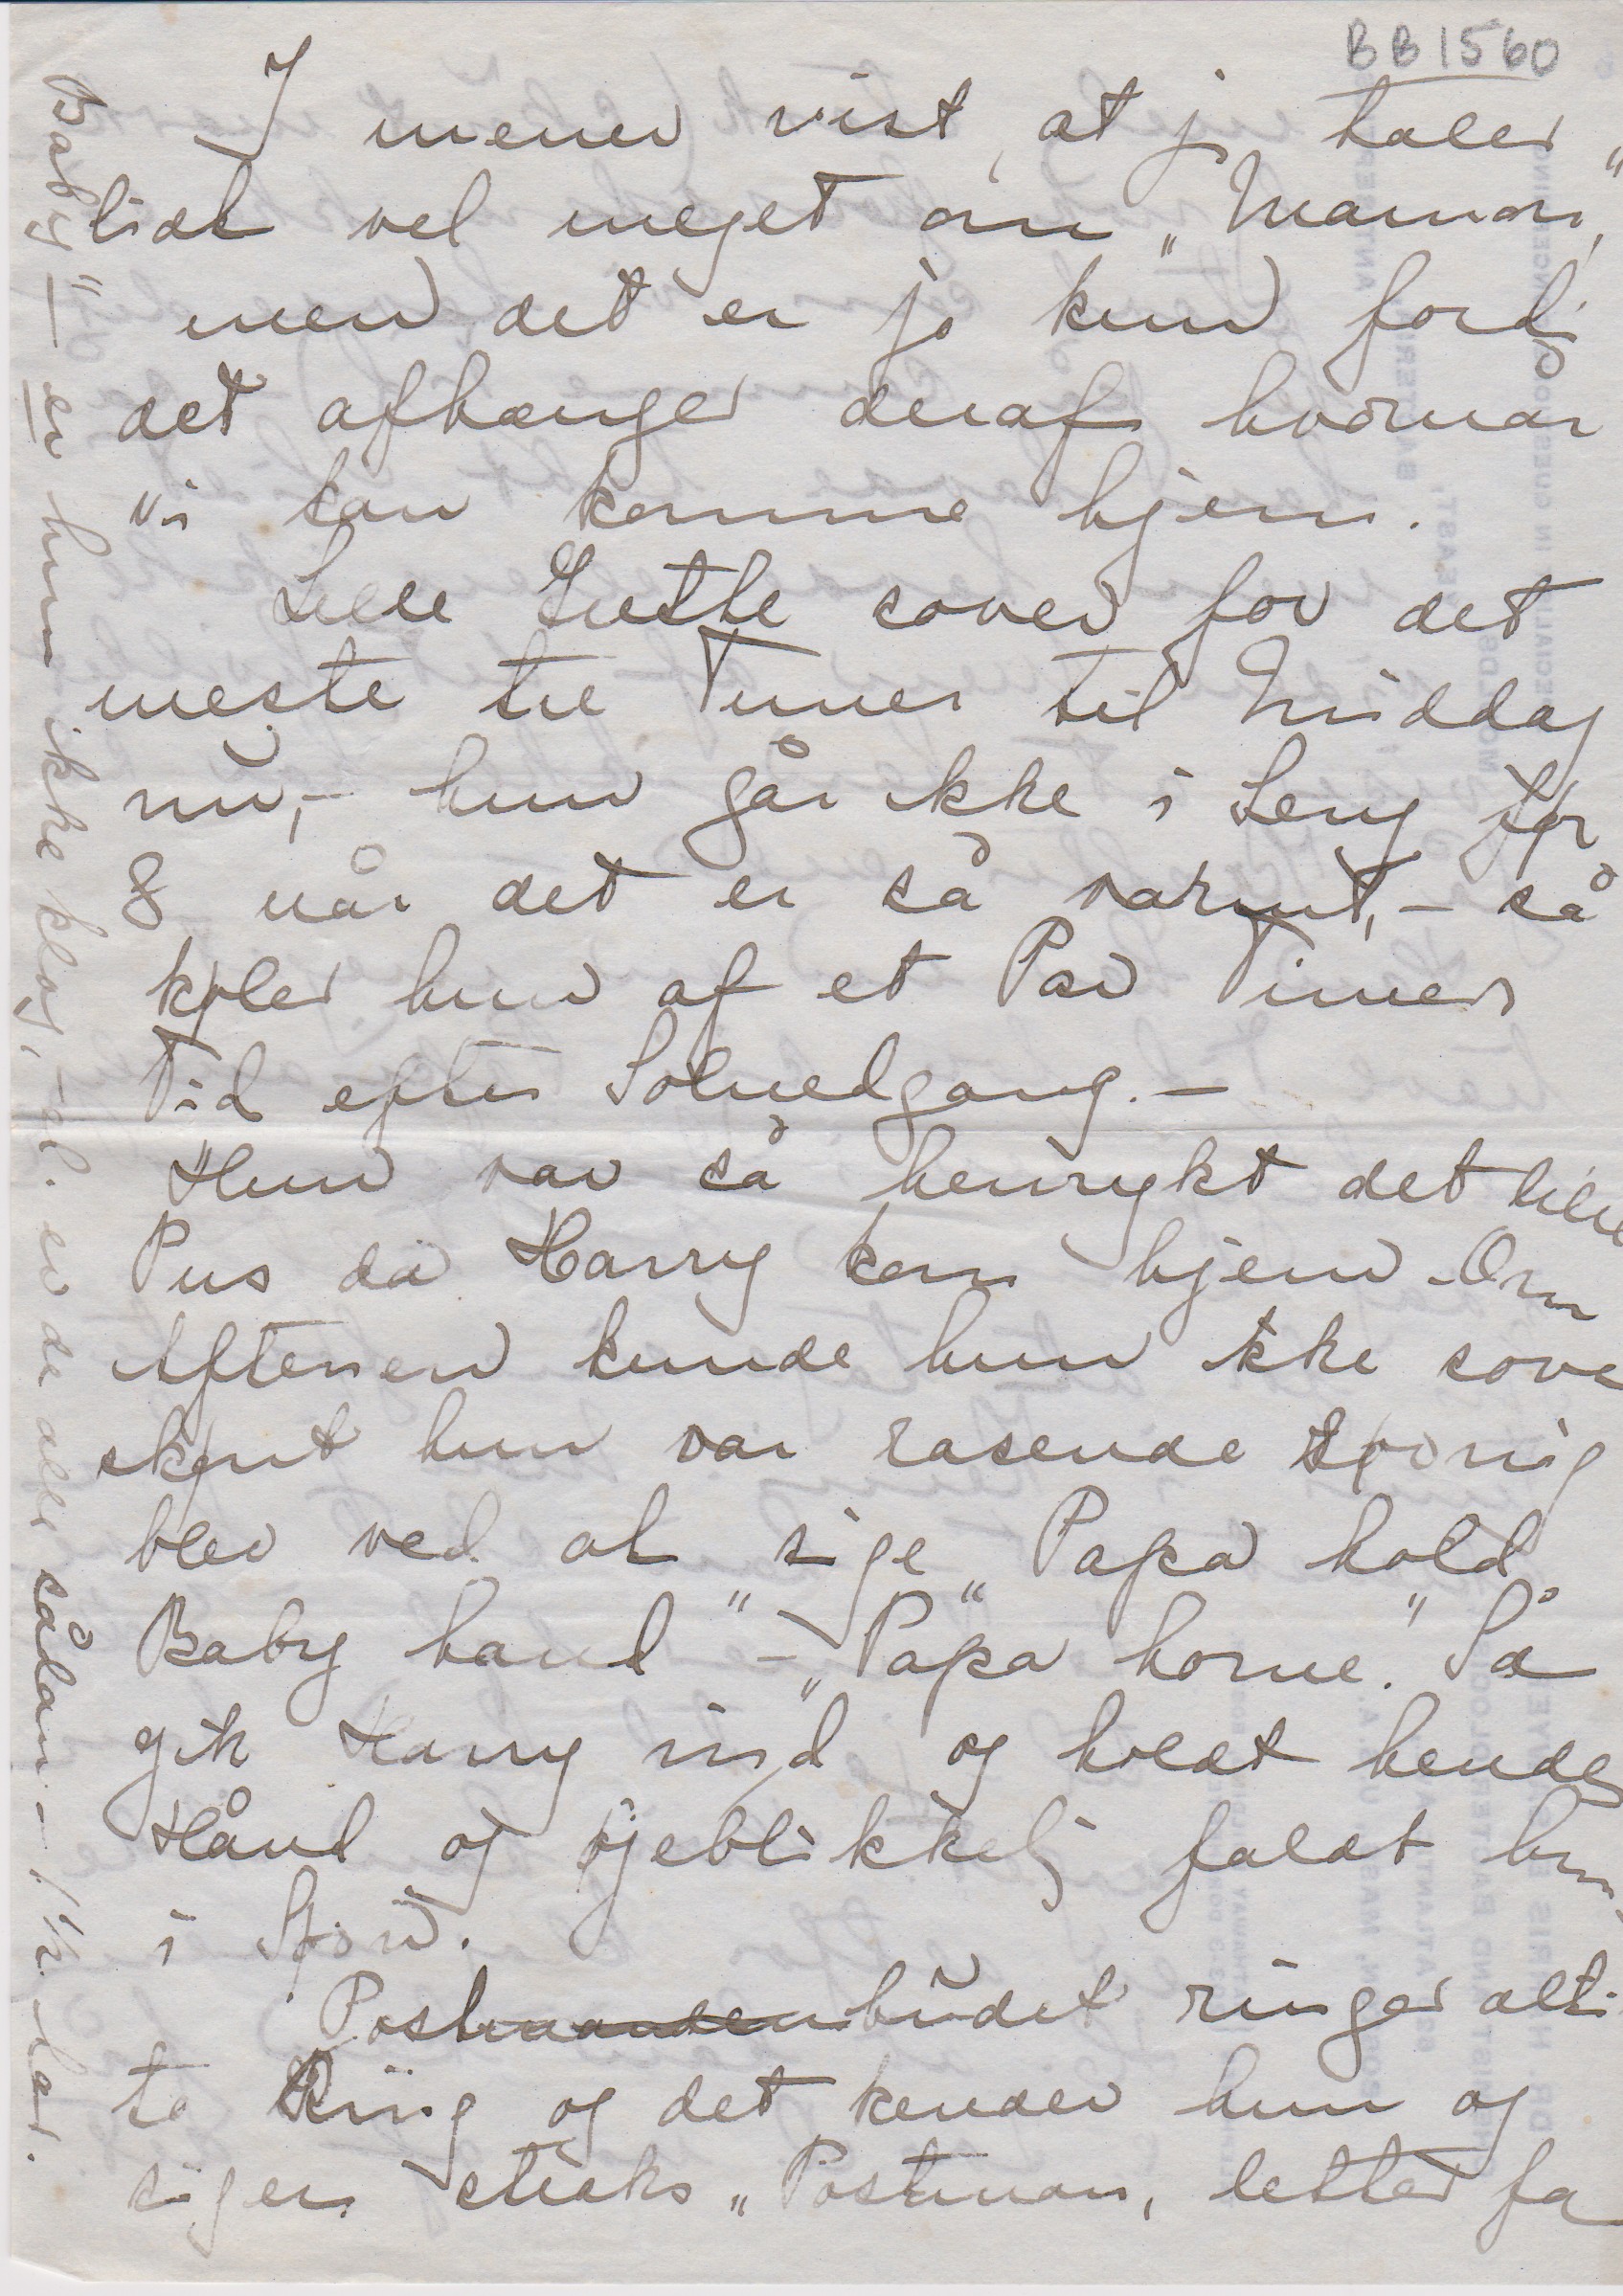 BB1560
I mener vist, at jeg taler
lidt vel meget om „Mamon",
men det er jo kun fordi
det afhænger deraf hvornår
vi kan komme hjem.
Lille Grethe sover for det
meste tre Timer til Middag
nu, – hun går ikke i Seng før
8 når det er så varmt, – så
køler hun af et Par Timers
Tid efter Solnedgang. –
Hun var så henrykt det lille
Pus da Harry kom hjem. Om
Aftenen kunde hun ikke sove
skønt hun var rasende søvnig
blev ved at sige „Papa hold
Baby hand" – „Papa home." Så
gik Harry ind og holdt hendes
Hånd og øjeblikkelig faldt hun
i Søvn.
Postmandenbudet ringer alti
to Ring og det kender hun og
siger straks „Postman, letter fo
Baby" – er hun ikke klog, – el. er de alle sådan – 1½ Aar.